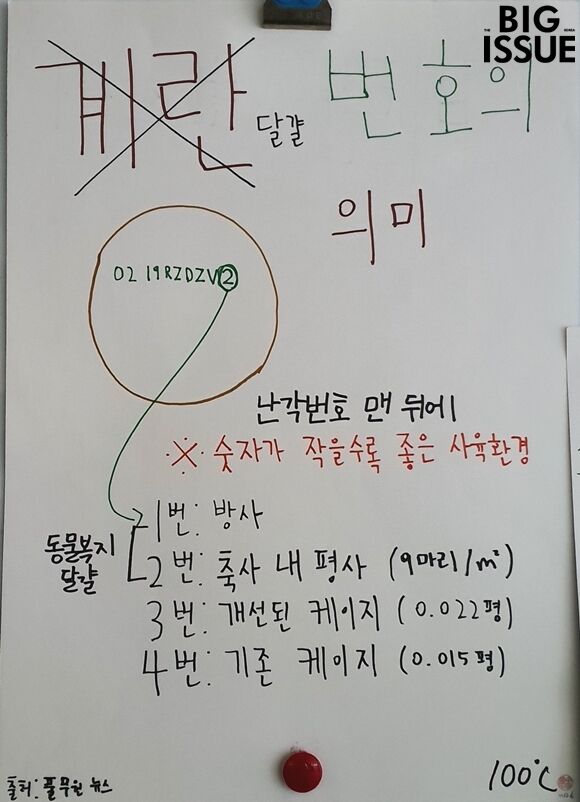 THE BIG KOREA
ISSUE
계란 번호의
달걀
의미
0219RZDZV②
난각번호 맨 뒤에
※ 숫자가 작을수록 좋은 사육환경
동물복지
달걀
1번: 방사
2번: 축사 내 평사 (9마리/m²)
3번: 개선된 케이지 (0.022평)
4번: 기존 케이지 (0.015평)
출처: 풀무원 뉴스
100℃